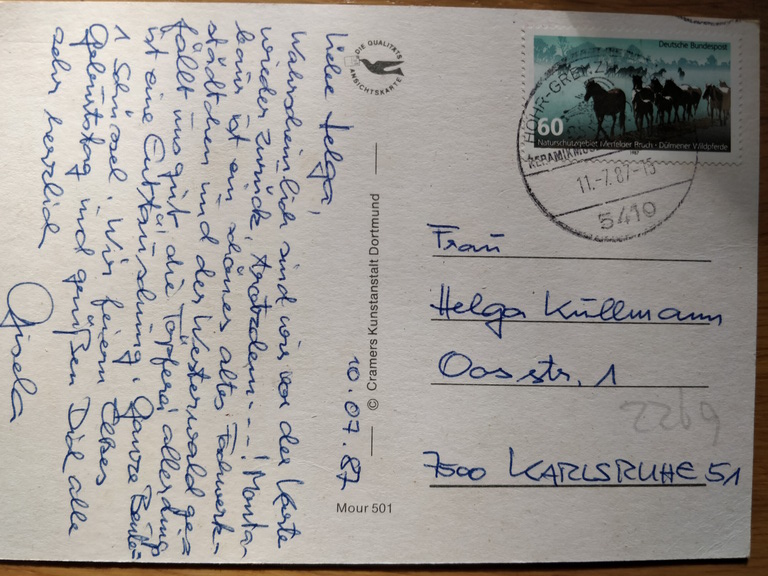 Liebe Helga,
wahrscheinlich sind wir vor der Karte
wieder zurück, trotzdem---! Monta-
baur ist ein schönes altes Fachwerk-
städtchen und der Westerwald ge-
fällt uns gut, die Töpferei allerdings
ist eine Enttäuschung, ganze Beute =
1 Schüssel. Wir feiern
Geburtstag und grüßen Dich alle
sehr herzlich
Gisela
10.07.87
DIE QUALITÄTS
ANSICHTSKARTE
© Cramers Kunstanstalt Dortmund
Mour 501
Deutsche Bundespost
60
Naturschutzgebiet Merfelder Bruch · Dülmener Wildpferde
HÖHR-GRENZ
KERAMIKMUS
11.-7.87-15
5410
Frau
Helga Küllmann
Oosstr. 1
2269
7500 KARLSRUHE 51